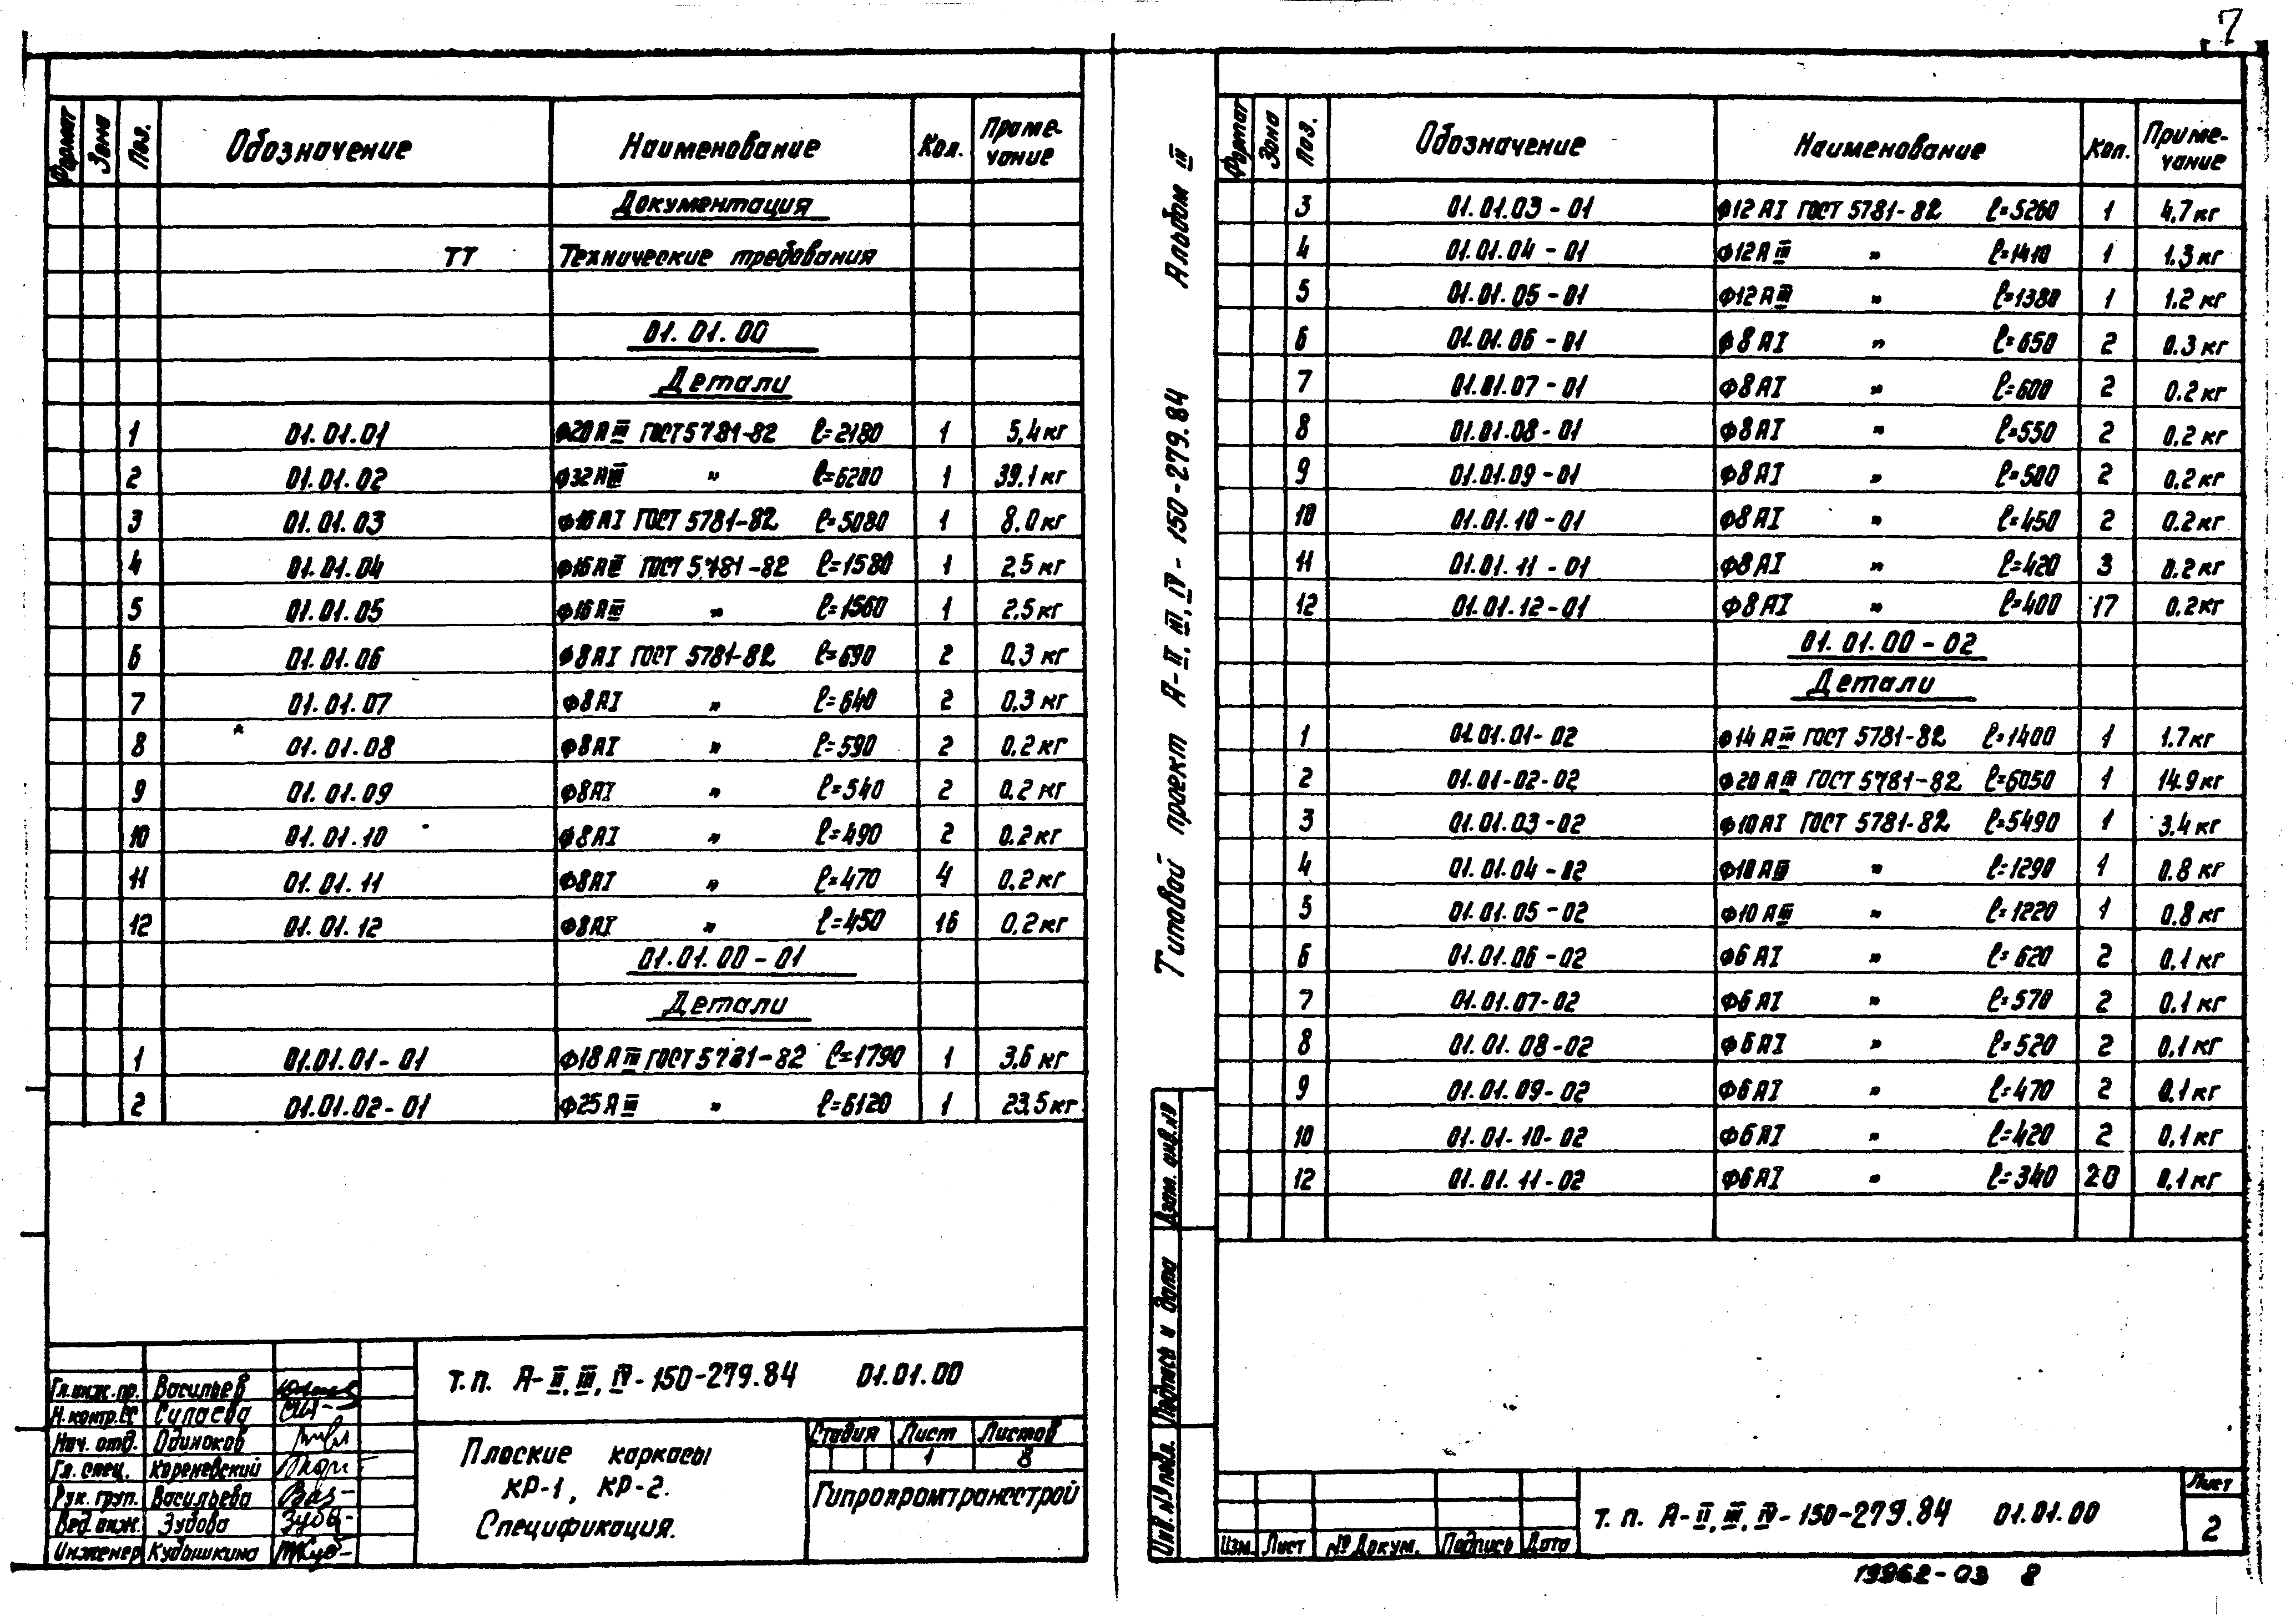 7
Формат Зона Поз. Обозначение Наименование Кол. Приме-
чание
Документация
ТТ Технические требования
01.01.00
Детали
1 01.01.01 Ф20АIII ГОСТ5781-82 ℓ=2180 1 5,4кг
2 01.01.02 Ф32АIII " ℓ=6200 1 39.1кг
3 01.01.03 Ф16АI ГОСТ 5781-82 ℓ=5080 1 8.0кг
4 01.01.04 Ф16АIII ГОСТ 5781-82 ℓ=1580 1 2,5кг
5 01.01.05 Ф16АIII " ℓ=1560 1 2,5кг
6 01.01.06 Ф8АI ГОСТ 5781-82 ℓ=690 2 0,3кг
7 01.01.07 Ф8АI " ℓ=640 2 0,3кг
8 01.01.08 Ф8АI " ℓ=590 2 0,2кг
9 01.01.09 Ф8АI " ℓ=540 2 0,2кг
10 01.01.10 Ф8АI " ℓ=490 2 0,2кг
11 01.01.11 Ф8АI " ℓ=470 4 0,2кг
12 01.01.12 Ф8АI " ℓ=450 16 0,2кг
01.01.00-01
Детали
1 01.01.01-01 Ф18АIII ГОСТ5781-82 ℓ=1790 1 3,6кг
2 01.01.02-01 Ф25АIII " ℓ=6120 1 23,5кг
Гл.инж.пр. Васильев
Н.контр. Силаева
Нач. отд. Одиноков
Гл. спец. Кореневский
Рук. груп. Васильева
Вед. инж. Зубова
Инженер Кудышкина
Т.п. А-II,III,IV-150-279.84 01.01.00
Плоские каркасы
КР-1, КР-2.
Спецификация.
Стадия Лист Листов
1 8
Гипропромтрансстрой
Типовой проект А-II,III,IV-150-279.84 Альбом III
Формат Зона Поз. Обозначение Наименование Кол. Приме-
чание
3 01.01.03-01 Ф12АI ГОСТ 5781-82 ℓ=5260 1 4,7кг
4 01.01.04-01 Ф12АIII " ℓ=1410 1 1.3кг
5 01.01.05-01 Ф12АIII " ℓ=1380 1 1.2кг
6 01.01.06-01 Ф8АI " ℓ=650 2 0.3кг
7 01.01.07-01 Ф8АI " ℓ=600 2 0.2кг
8 01.01.08-01 Ф8АI " ℓ=550 2 0.2кг
9 01.01.09-01 Ф8АI " ℓ=500 2 0.2кг
10 01.01.10-01 Ф8АI " ℓ=450 2 0.2кг
11 01.01.11-01 Ф8АI " ℓ=420 3 0.2кг
12 01.01.12-01 Ф8АI " ℓ=400 17 0.2кг
01.01.00-02
Детали
1 01.01.01-02 Ф14АIII ГОСТ 5781-82 ℓ=1400 1 1.7кг
2 01.01-02-02 Ф20АIII ГОСТ 5781-82 ℓ=6050 1 14.9кг
3 01.01.03-02 Ф10АI ГОСТ 5781-82 ℓ=5490 1 3.4кг
4 01.01.04-02 Ф10АIII " ℓ=1290 1 0.8кг
5 01.01.05-02 Ф10АIII " ℓ=1220 1 0.8кг
6 01.01.06-02 Ф6АI " ℓ=620 2 0.1кг
7 01.01.07-02 Ф6АI " ℓ=570 2 0.1кг
8 01.01.08-02 Ф6АI " ℓ=520 2 0.1кг
9 01.01.09-02 Ф6АI " ℓ=470 2 0.1кг
10 01.01-10-02 Ф6АI " ℓ=420 2 0.1кг
12 01.01.11-02 Ф6АI " ℓ=340 20 0.1кг
Инв.№подл. Подпись и дата Взам. инв.№
Изм. Лист № Докум. Подпись Дата
Т.п. А-II,III,IV-150-279.84 01.01.00
Лист
2
19962-03 8